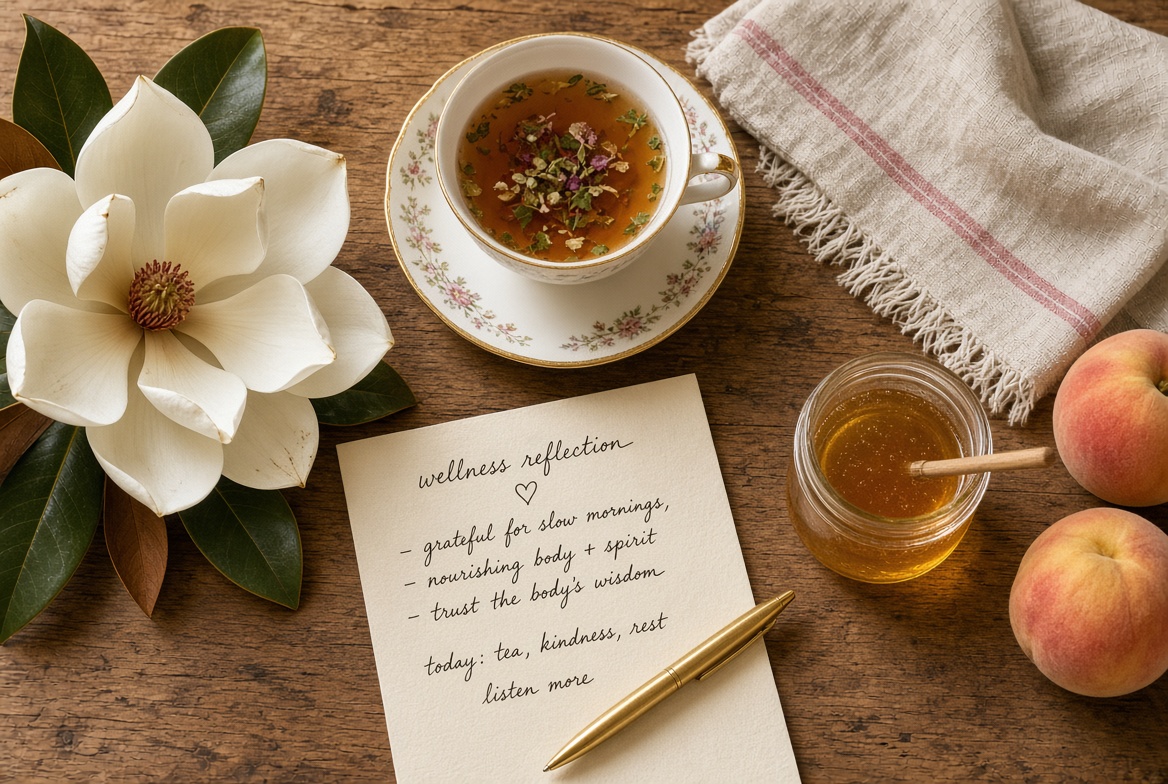 wellness reflection
– grateful for slow mornings,
– nourishing body + spirit
– trust the body's wisdom
today: tea, kindness, rest
listen more